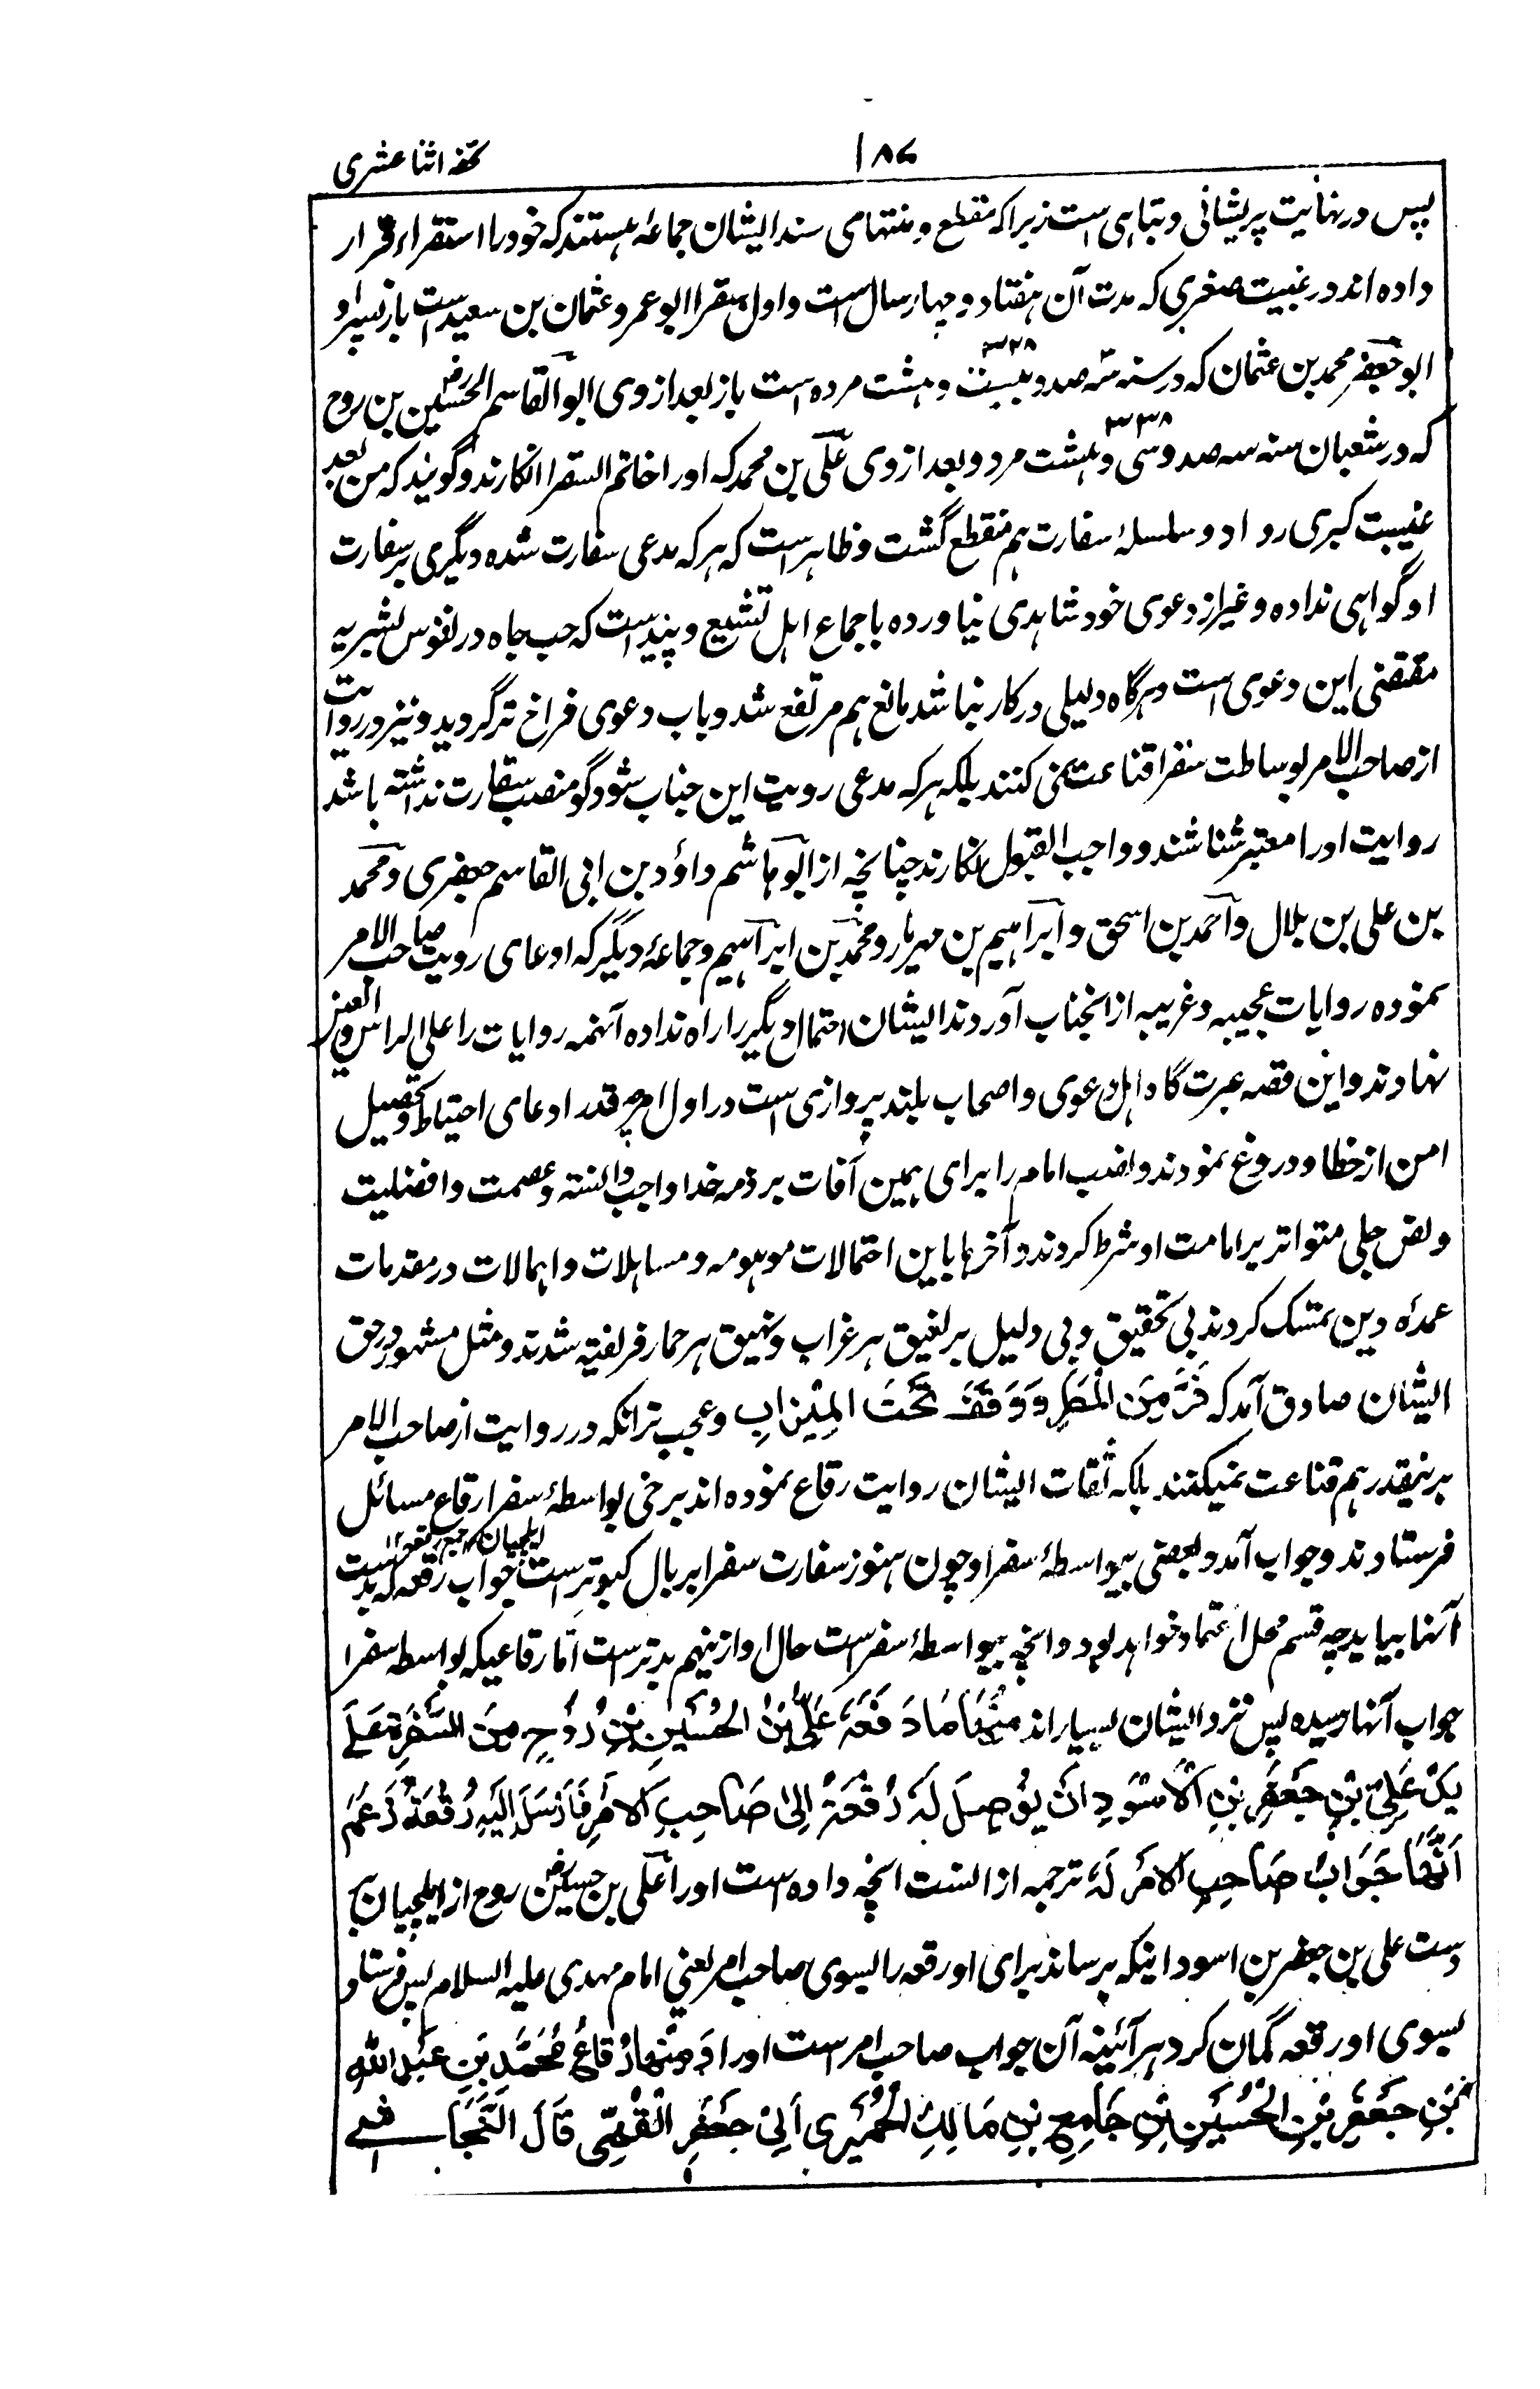 ۱۸۷
تحفه اثنا عشری
پس در نهایت پریشانی و تباهی است زیرا که مقطع و منتهای سند ایشان جماعهٔ هستند که خود را استقراء قرار
داده اند در غیبت صغری که مدت آن هفتاد و چهار سال است و اول سفرا ابو عمرو عثمان بن سعید است باز پسر او
ابو جعفر محمد بن عثمان که در سنه سه صد و بیست و هشت ۳۲۸ مرده است باز بعد از وی ابو القاسم الحسین بن روح
که در شعبان سنه سه صد و سی و هشت ۳۳۸ مرد و بعد از وی علی بن محمد که او را خاتم السفرا انکارند و گویند که من بعد
غیبت کبری رو داد و سلسلهٔ سفارت هم منقطع گشت و ظاهر است که هر که مدعی سفارت شده دیگری بر سفارت
او گواهی نداده و غیر از دعوی خود شاهدی نیاورده باجماع اهل تشیع و پیداست که حب جاه در نفوس بشریه
مقتضی این دعوی است و هرگاه دلیلی درکار نباشد مانع هم مرتفع شد و باب دعوی فراخ تر گردید و نیز در روایت
از صاحب الامر بوساطت سفرا قناعت نمی کنند بلکه هر که مدعی رویت این جناب شود گو منصب سفارت نداشته باشد
روایت او را معتبر شناشند و واجب القبول انکارند چنانچه از ابو هاشم داؤد بن ابی القاسم جعفری و محمد
بن علی بن بلال و احمد بن اسحق و ابراهیم بن مهریار و محمد بن ابراهیم و جماعهٔ دیگر که ادعای رویت صاحب الامر
نموده روایات عجیبه و غریبه از انجناب آوردند ایشان احتمال دیگر را راه نداده آنهمه روایات را علی الراس و العین
نهادند و این قصه عبرت گاه اهل دعوی و اصحاب بلند پروازی است در اول امر چه قدر ادعای احتیاط و تحصیل
امن از خطا و دروغ نمودند و نصب امام را برای همین آفات بر ذمه خدا واجب دانسته و عصمت و افضلیت
و نص جلی متواتر بر امامت او شرط کردند و آخرها باین احتمالات موهومه و مساهلات و اهمالات در مقدمات
عمدهٔ دین تمسک کردند بی تحقیق و بی دلیل بر نغیق هر غراب و نهیق هر حمار فریفته شدند و مثل مشهور در حق
ایشان صادق آمد که فَرَّ مِنَ الْمَطَرِ وَ وَقَفَ تَحْتَ الْمِیْزَابِ و عجب تر انکه در روایت از صاحب الامر
برینقدر هم قناعت نمیکنند بلکه ثقات ایشان روایت رقاع نموده اند برخی بواسطهٔ سفرا رقاع مسائل
فرستادند و جواب آمد و بعضی بیواسطهٔ سفرا و چون هنوز سفارت سفرا بر بال کبوتر است جواب رقعه که بدست
آنها بیاید چه قسم محل اعتماد خواهد بود و انچه بیواسطهٔ سفر است حال او ازینهم بدتر است اما رقاعیکه بواسطه سفرا
جواب آنها رسیده پس نزد ایشان بسیار اند مِنْهَا مَا دَفَعَهُ عَلِیُّ بْنُ الْحُسَیْنِ بْنِ رُوْحٍ مِنَ السَّفَرَةِ عَلٰی
یَدِ عَلِیِّ بْنِ جَعْفَرِ بْنِ الْاَسْوَدِ اَنْ یُوْصِلَ لَهُ رُقْعَةً اِلٰی صَاحِبِ الْاَمْرِ فَاَرْسَلَ اِلَیْهِ رُقْعَةً زَعَمَ
اَنَّهَا جَوَابُ صَاحِبِ الْاَمْرِ لَهُ ترجمه از انست انچه داده است او را علی بن حسین بن روح از ایلچیان بر
دست علی بن جعفر بن اسود اینکه برساند برای او رقعه را بسوی صاحب امر یعنی امام مهدی علیه السلام پس فرستاد
بسوی او رقعه گمان کرد هر آئینه آن جواب صاحب امر است او را وَ مِنْهَا رُقَاعُ مُحَمَّدِ بْنِ عَبْدِ اللّٰهِ
بْنِ جَعْفَرِ بْنِ الْحُسَیْنِ بْنِ جَامِعِ بْنِ مَالِکِ الْحُمَیْرِی اَبِیْ جَعْفَرِ الْقُمِّی قَالَ النَّجَاشِی